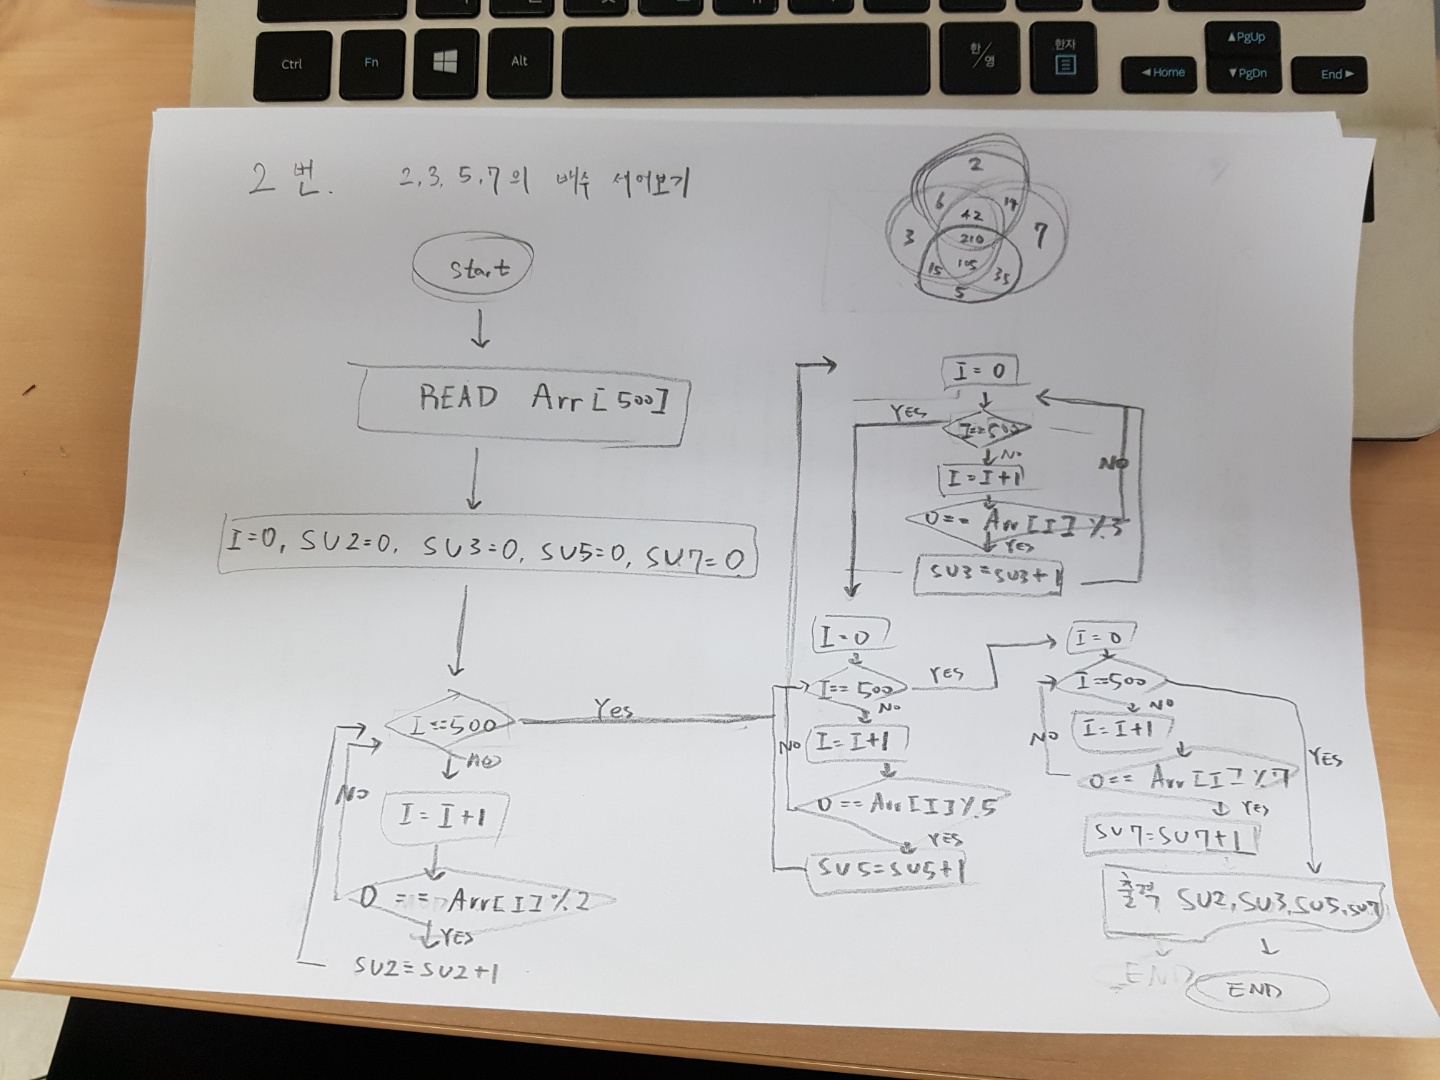 Ctrl
Fn
Alt
한/영
한자
▲PgUp
◄Home
▼PgDn
End►
2번. 2,3,5,7의 배수 세어보기
2
6
14
42
3
210
7
15
105
35
5
Start
READ Arr[500]
I=0, SU2=0, SU3=0, SU5=0, SU7=0
I==500
Yes
NO
I=I+1
NO
0 == Arr[I]%2
YES
SU2=SU2+1
I=0
YES
I==500
NO
NO
I=I+1
0== Arr[I]%3
YES
SU3=SU3+1
I=0
I==500
YES
NO
NO
I=I+1
0==Arr[I]%5
YES
SU5=SU5+1
I=0
I==500
NO
NO
I=I+1
YES
0== Arr[I]%7
YES
SU7=SU7+1
출력 SU2,SU3,SU5,SU7
END
END